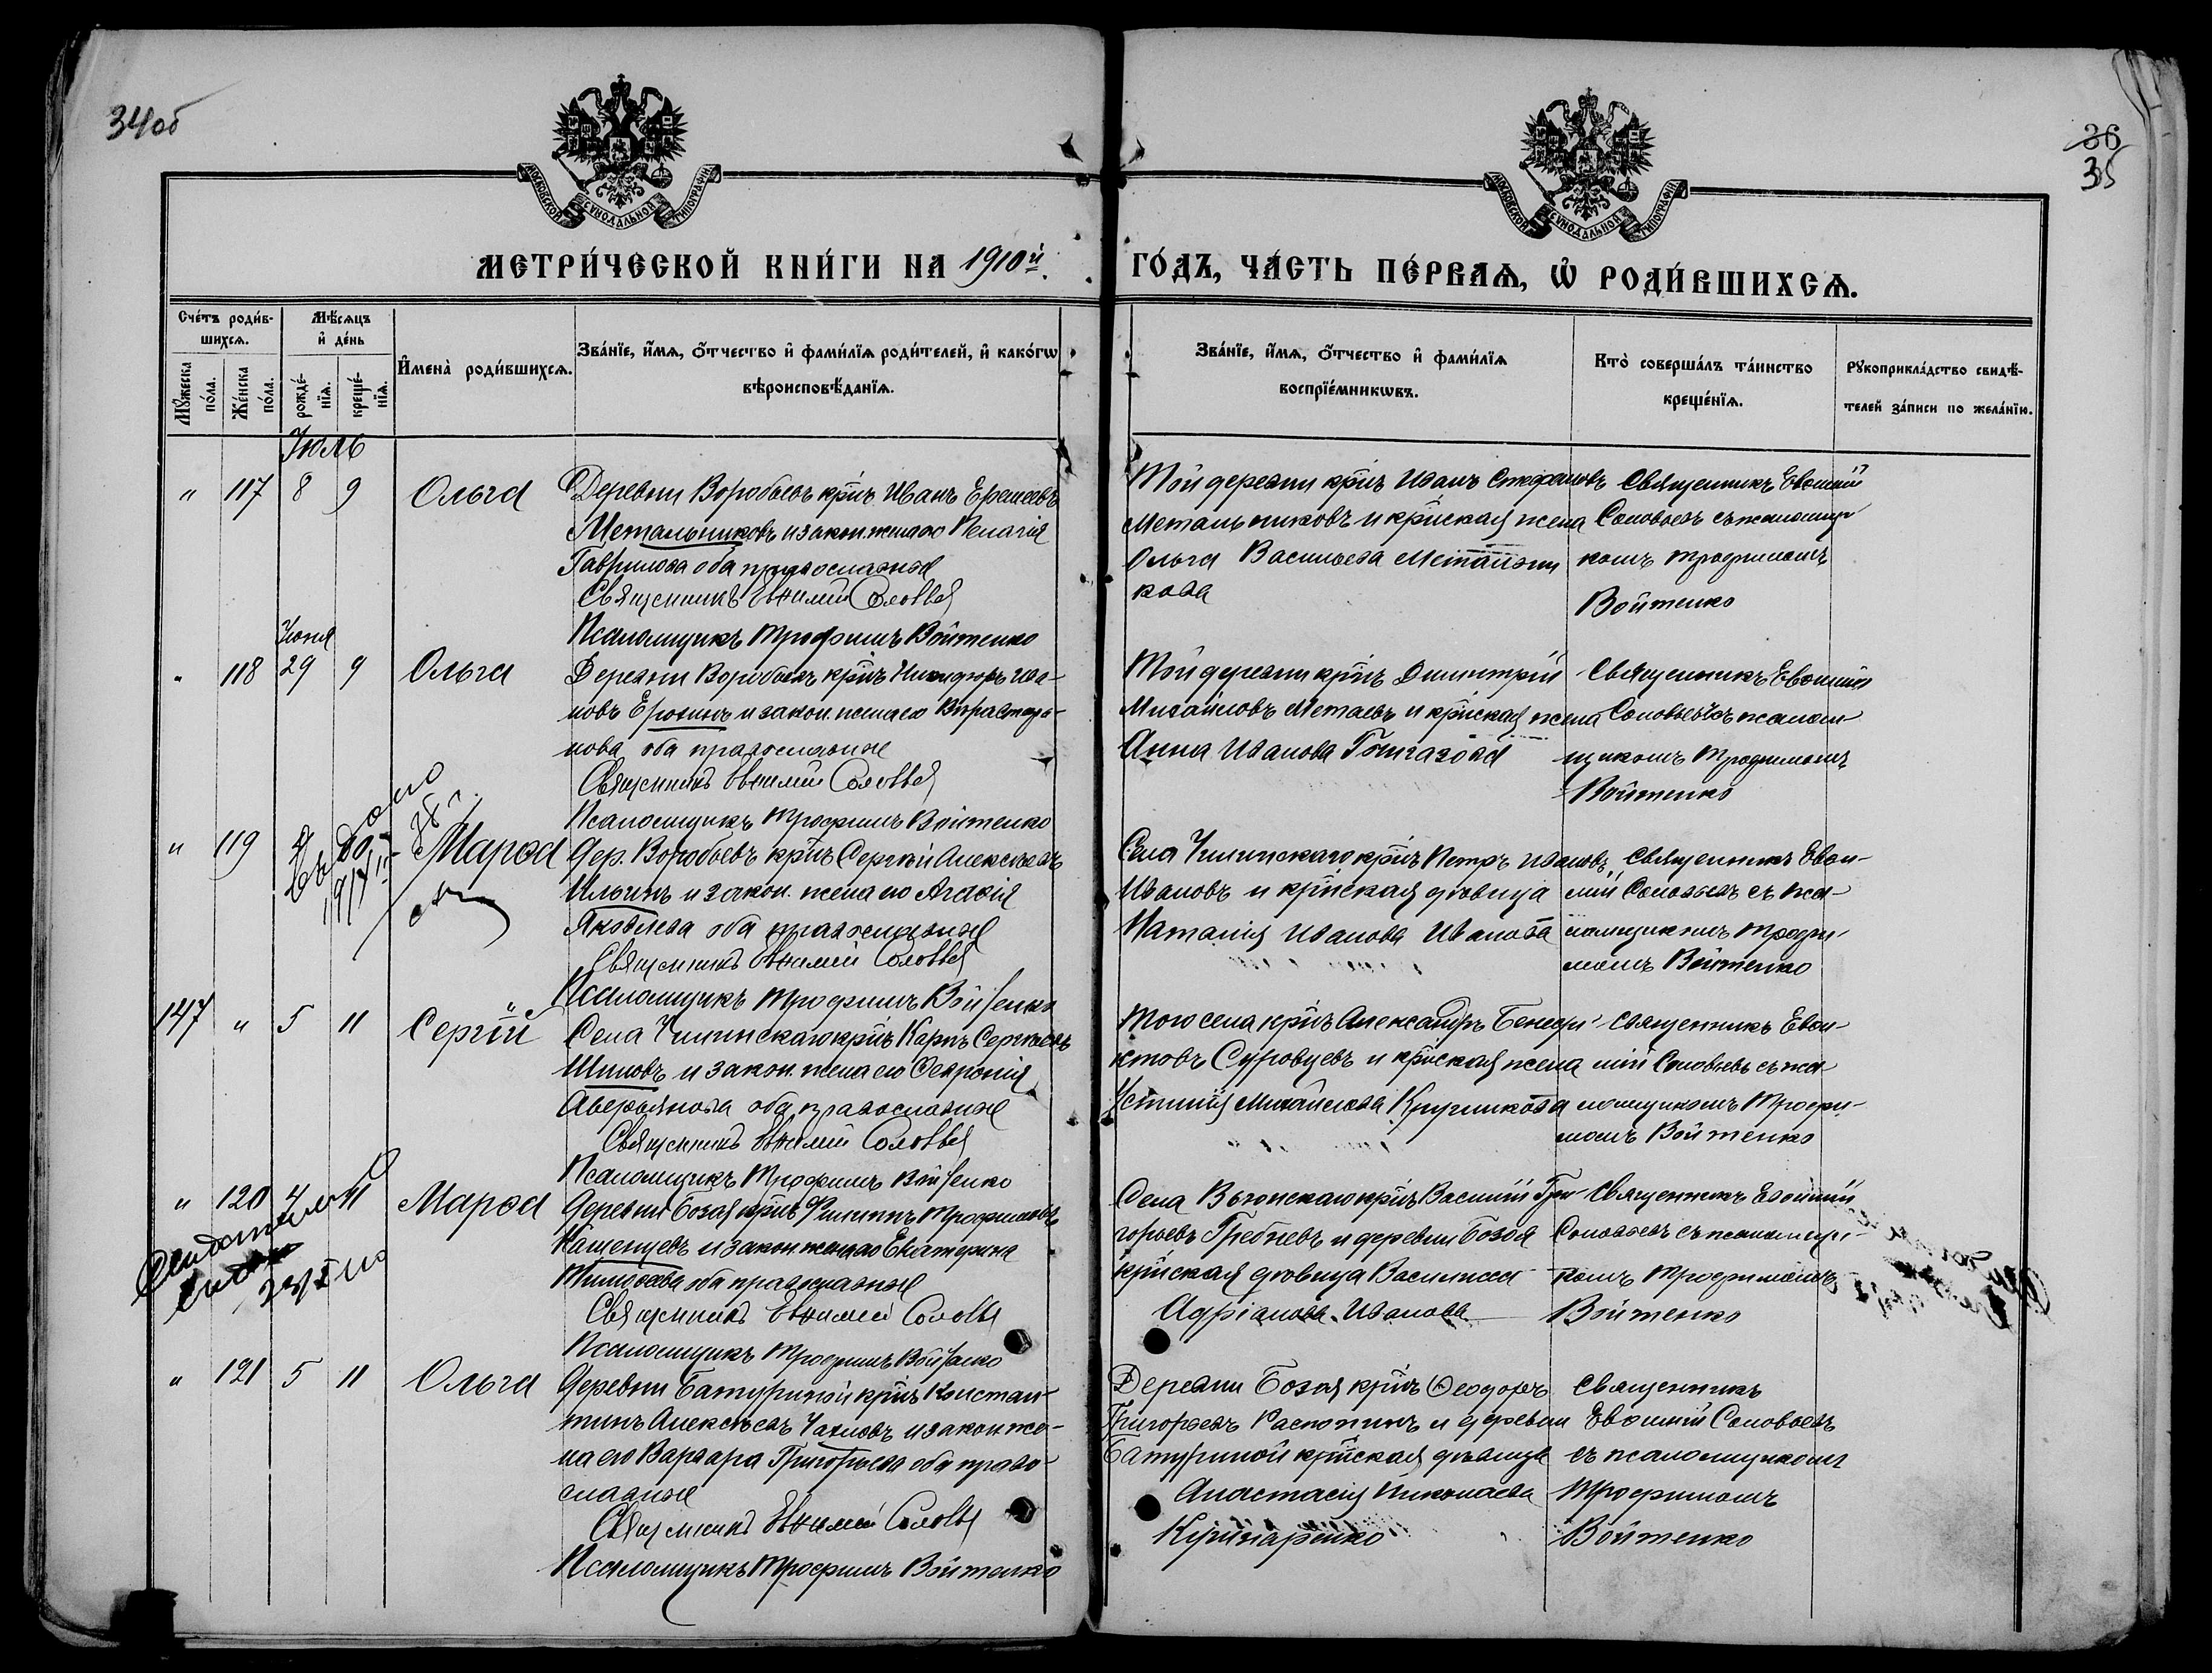 34 об
36
35
МОСКОВСКОЙ СѴНОДАЛЬНОЙ ТИПОГРАФІИ
МОСКОВСКОЙ СѴНОДАЛЬНОЙ ТИПОГРАФІИ
МЕТРИ́ЧЕСКОЙ КНИ́ГИ НА 1910й.
ГО́ДЪ, ЧА́СТЬ ПЕ́РВАѦ, Ѡ҆ РОДИ́ВШИХСѦ.
Сче́тъ роди́в-
шихсѧ.
Мꙋ́жеска
по́ла.
Же́нска
по́ла.
Мѣ́сѧцъ
и҆ де́нь
рожде́-
нїѧ.
креще́-
нїѧ.
И҆мена̀ роди́вшихсѧ.
Зва́нїе, и҆́мѧ, ѻ҆́тчество и҆ фами́лїѧ роди́телей, и҆ како́гѡ
вѣроисповѣ́данїѧ.
Зва́нїе, и҆́мѧ, ѻ҆́тчество и҆ фами́лїѧ
воспрїе́мникѡвъ.
Кто̀ соверша́лъ та́инство
креще́нїѧ.
Рꙋкоприкла́дство свидѣ́-
телей за́писи по жела́нїю.
Іюль
" 117 8 9 Ольга
Деревни Воробьевъ кр҃нъ Иванъ Ермеевъ
Метальниковъ и закон. жена его Пелагія
Гаврилова оба православные
Священникъ Евѳимій Соловьев
Псаломщикъ Трофимъ Войтенко
Той деревни кр҃нъ Иванъ Стефановъ
Метальниковъ и кр҃нская жена
Ольга Васильева Метальни
кова
Священникъ Евѳимій
Соловьевъ съ псаломщи
комъ Трофимомъ
Войтенко
Іюня
" 118 29 9 Ольга
Деревни Воробьевъ кр҃нъ Никифоръ Ива-
новъ Ерохинъ и закон. жена его Вѣра Стефа-
нова оба православные
Священникъ Евѳимій Соловьев
Псаломщикъ Трофимъ Войтенко
Той деревни кр҃нъ Димитрій
Михайловъ Метаевъ и кр҃нская жена
Анна Иванова
Священникъ Евѳимій
Соловьевъ съ псалом-
щикомъ Трофимомъ
Войтенко
" 119 Марѳа
1917
Дер. Воробьевъ кр҃нъ Сергѣй Алексѣевъ
Ильинъ и закон. жена его Агаѳія
Яковлева оба православные
Священникъ Евѳимій Соловьев
Псаломщикъ Трофимъ Войтенко
Села кр҃нъ Петръ Ивановъ
Ивановъ и кр҃нская дѣвица
Наталія Иванова Иванова
Священникъ Евѳи-
мій Соловьевъ съ пса-
ломщикомъ Трофи-
момъ Войтенко
147 " 5 11 Сергій
Села кр҃нъ Карпъ Сергѣевъ
Шиловъ и закон. жена его Ѳевронія
Аверьянова оба православные
Священникъ Евѳимій Соловьев
Псаломщикъ Трофимъ Войтенко
Того села кр҃нъ Александръ Бенеди-
ктовъ Суровцевъ и кр҃нская жена
Устинія Михайлова Кругликова
Священникъ Евѳи-
мій Соловьевъ съ пса
ломщикомъ Трофи-
момъ Войтенко
" 120 4 11 Марѳа
Деревни Бозоя кр҃нъ Филиппъ Трофимовъ
Кашенцевъ и закон. жена его Екатерина
Тимоѳеева оба православные
Священникъ Евѳимій Соловьев
Псаломщикъ Трофимъ Войтенко
Села кр҃нъ Василій Гри-
горьевъ Гребневъ и деревни Бозоя
кр҃нская дѣвица Василисса
Адріанова Иванова
Священникъ Евѳимій
Соловьевъ съ псаломщи-
комъ Трофимомъ
Войтенко
" 121 5 11 Ольга
Деревни Батуриной кр҃нъ Констан-
тинъ Алексѣевъ и закон. же-
на его Варвара Григорьева оба право-
славные
Священникъ Евѳимій Соловьев
Псаломщикъ Трофимъ Войтенко
Деревни Бозоя кр҃нъ Ѳеодоръ
Григорьевъ Распопинъ и деревни
Батуриной кр҃нская дѣвица
Анастасія Николаева
Священникъ
Евѳимій Соловьевъ
съ псаломщикомъ
Трофимомъ
Войтенко